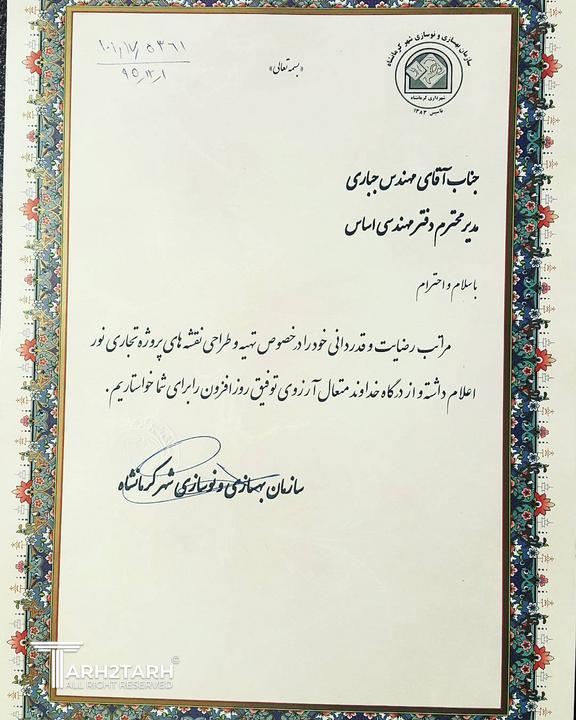 ۵۳۶۱/۱۰۱
۹۵،۱۲،۱
«بسمه تعالی»
سازمان بهسازی و نوسازی شهر کرمانشاه
شهرداری کرمانشاه
تاسیس ۱۳۸۳
جناب آقای مهندس جباری
مدیر محترم دفتر مهندسی اساس
با سلام و احترام
مراتب رضایت و قدردانی خود را در خصوص تهیه و طراحی نقشه های پروژه تجاری نور
اعلام داشته و از درگاه خداوند متعال آرزوی توفیق روز افزون را برای شما خواستاریم.
سازمان بهسازی و نوسازی شهر کرمانشاه
TARH2TARH©
ALL RIGHT RESERVED